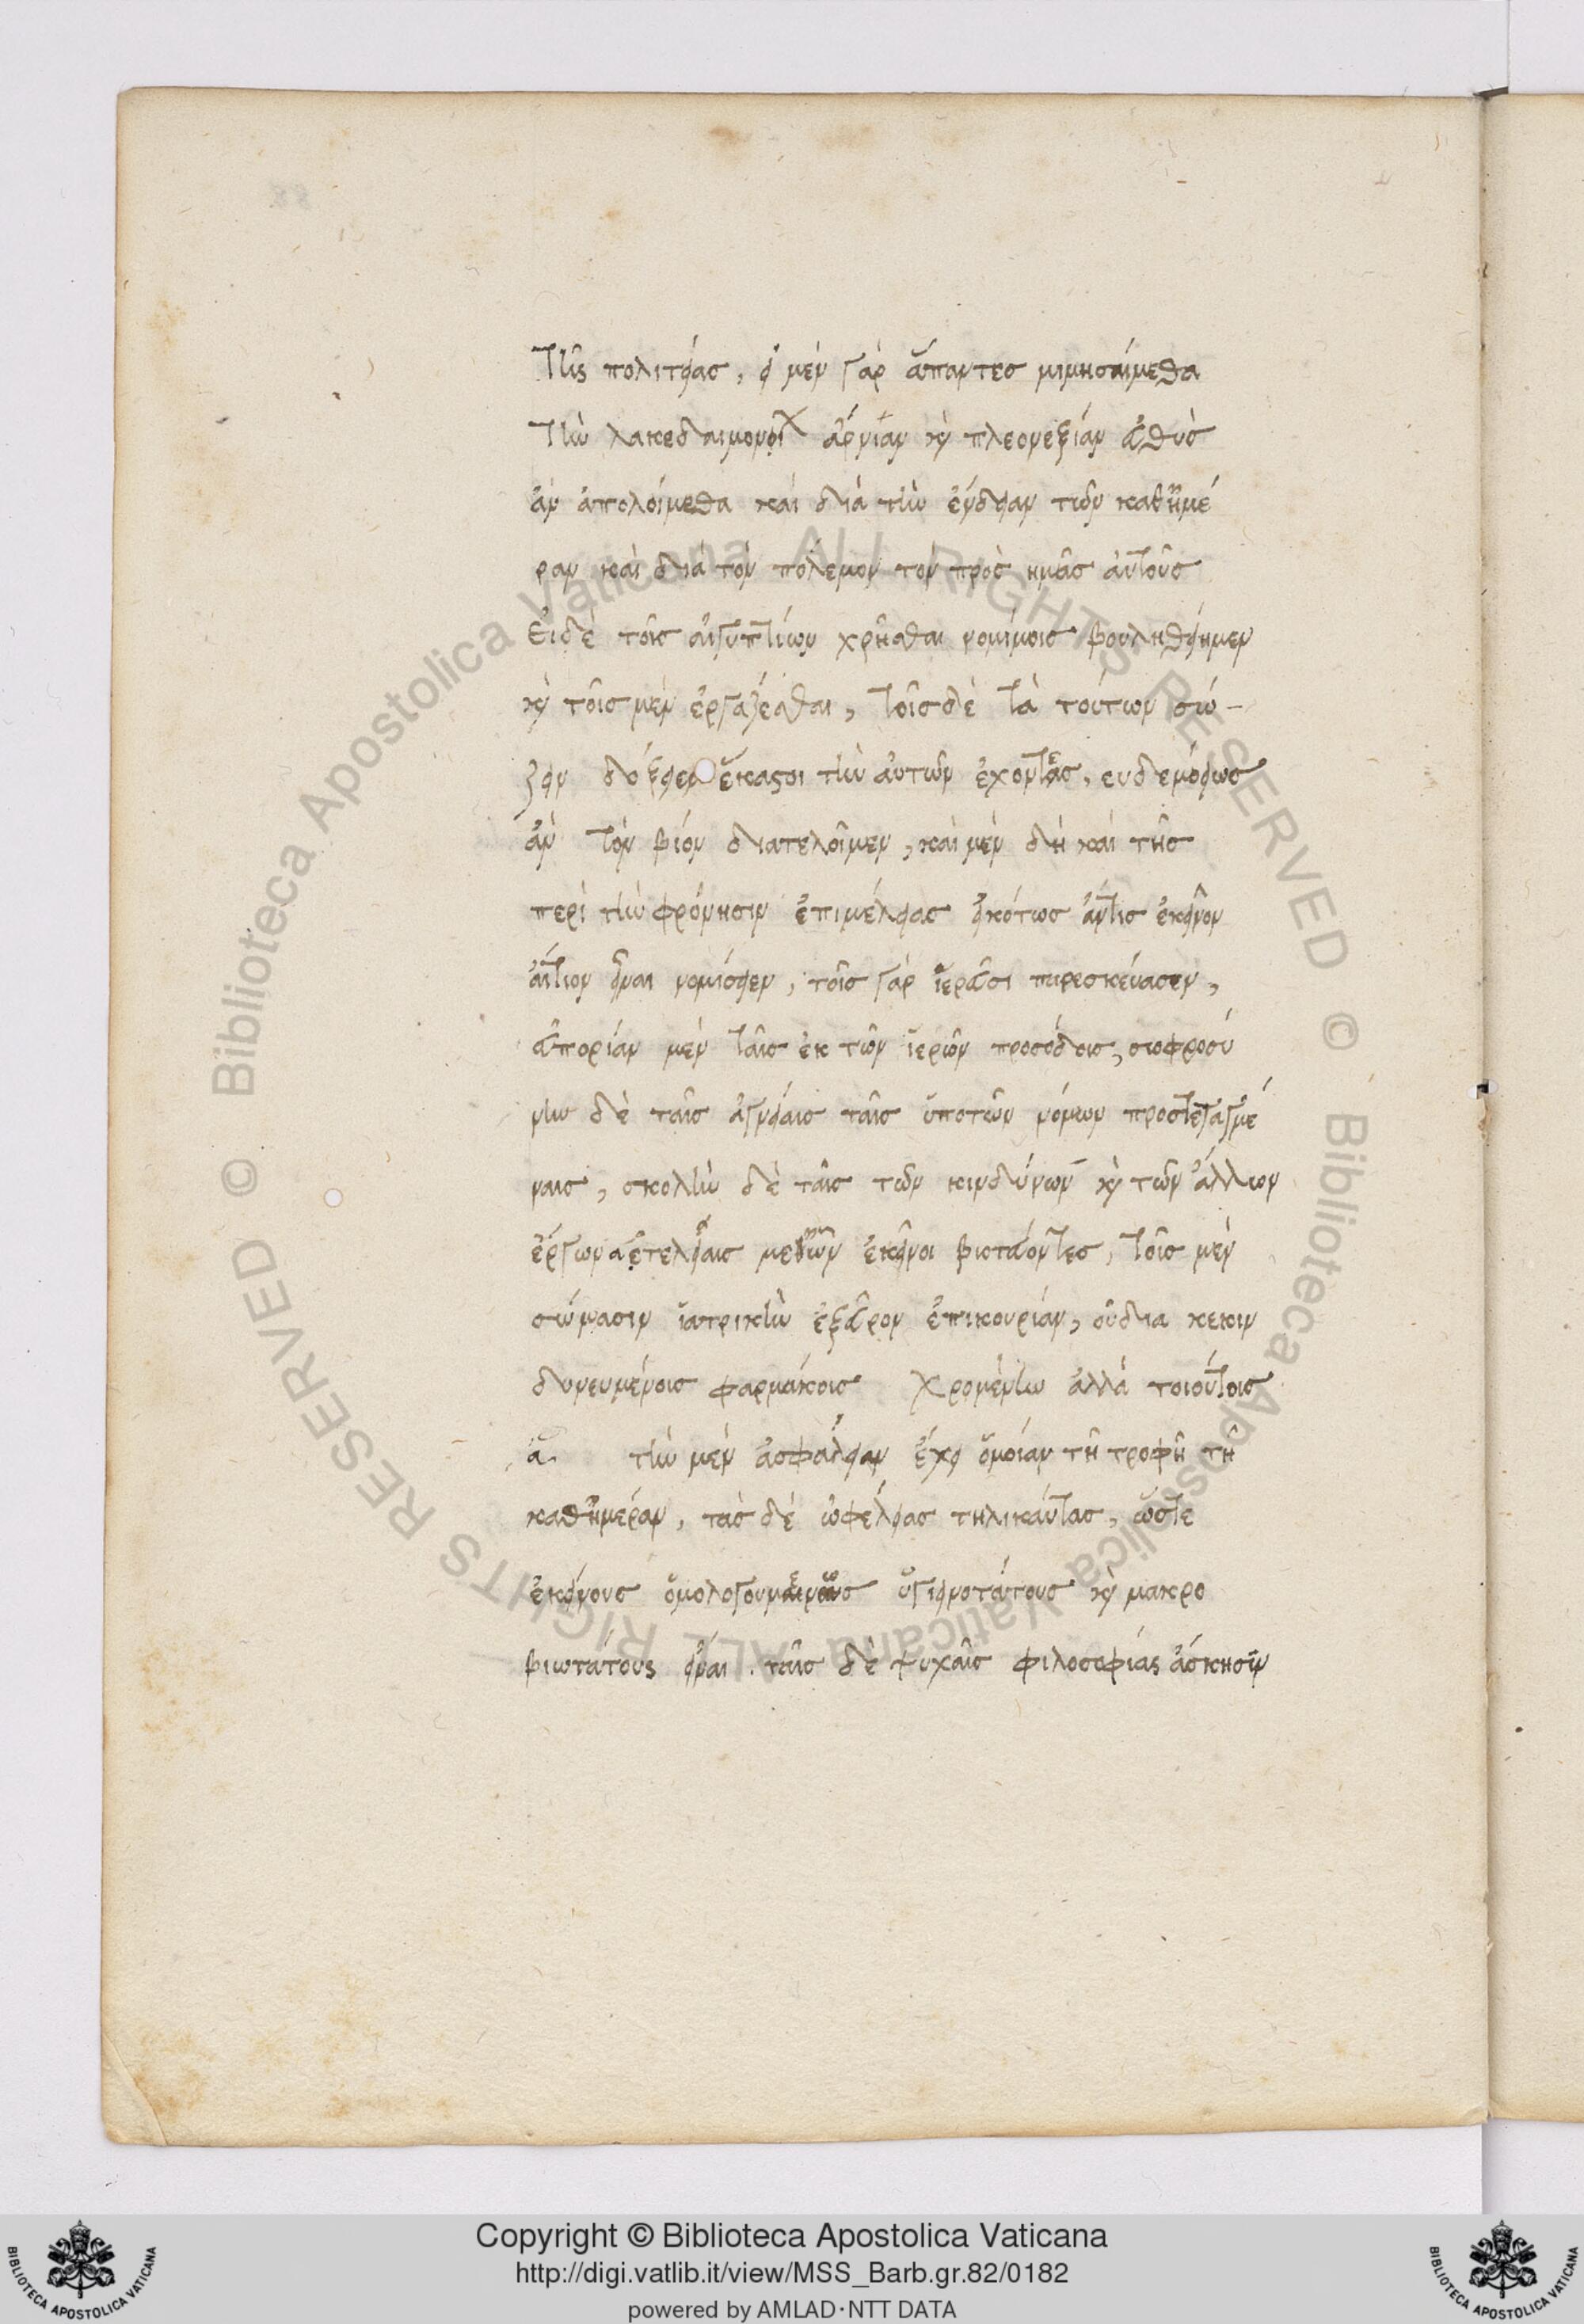 τῆς πολιτείας, εἰ μὲν γὰρ ἅπαντες μιμησαίμεθα
τὴν λακεδαιμονίων ἀργίαν καὶ πλεονεξίαν εὐθὺς
ἂν ἀπολοίμεθα καὶ διὰ τὴν ἔνδειαν τῶν καθημέ
ραν καὶ διὰ τὸν πόλεμον τὸν πρὸς ημᾶς αὐτοὺς
Εἰ δὲ τοῖς αἰγυπτίων χρῆσθαι νομίμοις βουληθείημεν
καὶ τοῖς μὲν ἐργάζεσθαι, τοῖς δὲ τὰ τούτων σώ-
ζειν δόξειεν ἕκαστοι τὴν αὐτῶν ἔχοντες, ευδεμόνως
ἂν τὸν βίον διατελοῖμεν, καὶ μὲν δὴ καὶ τῆς
περὶ τὴν φρόνησιν ἐπιμέλειας εἰκότως ἄν τις ἐκεῖνον
αἴτιον εἶναι νομίσειεν, τοῖς γὰρ ἱερεῦσι παρεσκεύασεν,
εὐπορίαν μὲν ταῖς ἐκ τῶν ἱερῶν προσόδοις, σωφροσύ
νην δὲ ταῖς ἁγνείαις ταῖς ὑπο τῶν νόμων προστεταγμέ
ναις, σχολὴν δὲ ταῖς τῶν κινδύνων καὶ τῶν ἄλλων
ἔργων ἀτελείαις μεθ' ὧν ἐκεῖνοι βιοτεύοντες, τοῖς μὲν
σώμασιν ἰατρικὴν ἐξεῦρον ἐπικουρίαν, οὐ δια κεκιν
δυνευμένοις φαρμάκοις χρομένην ἀλλὰ τοιούτοις
ἃ τὴν μὲν ἀσφάλειαν ἔχει ὁμοίαν τῇ τροφῇ τῇ
καθημέραν, τὰς δὲ ὠφέλειας τηλικαύτας, ὥστε
ἐκείνους ὁμολογουμένως ὑγιεινοτάτους καὶ μακρο
βιωτάτους εἶναι. ταῖς δὲ ψυχαῖς φιλοσοφίας ἄσκησιν
Copyright © Biblioteca Apostolica Vaticana
http://digi.vatlib.it/view/MSS_Barb.gr.82/0182
powered by AMLAD·NTT DATA